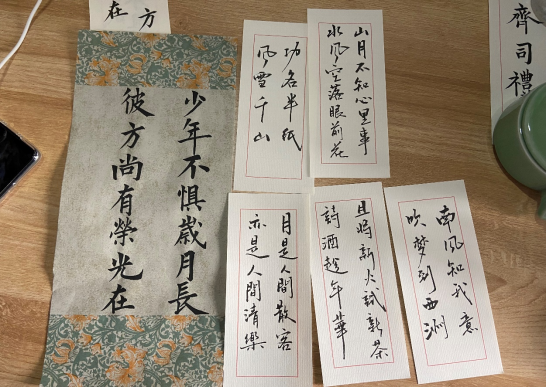 方
在
少年不懼歲月長
彼方尚有榮光在
功名半紙
風雪千山
山月不知心里事
水風空落眼前花
齊司禮
月是人間散客
亦是人間清樂
且將新火試新茶
詩酒趁年華
南風知我意
吹梦到西洲